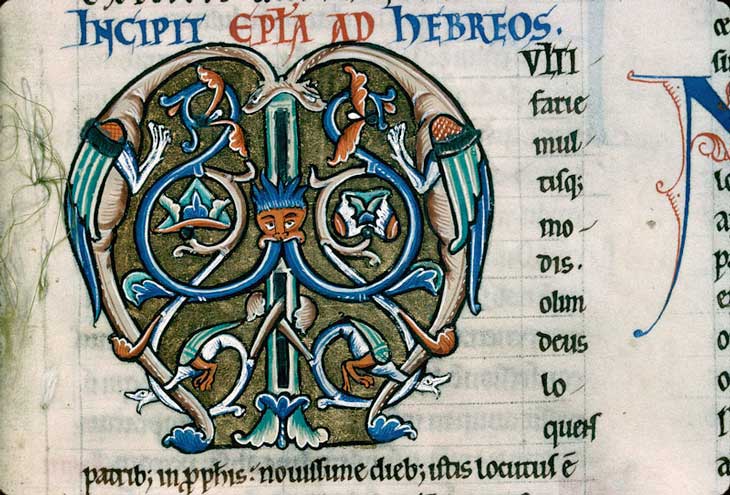 INCIPIT EPLA AD HEBREOS.
M
VLTI
farie
mul
tisq;
mo
dis.
olim
deus
lo
quens
patrib; in prophis: novissime dieb; istis locutus ē